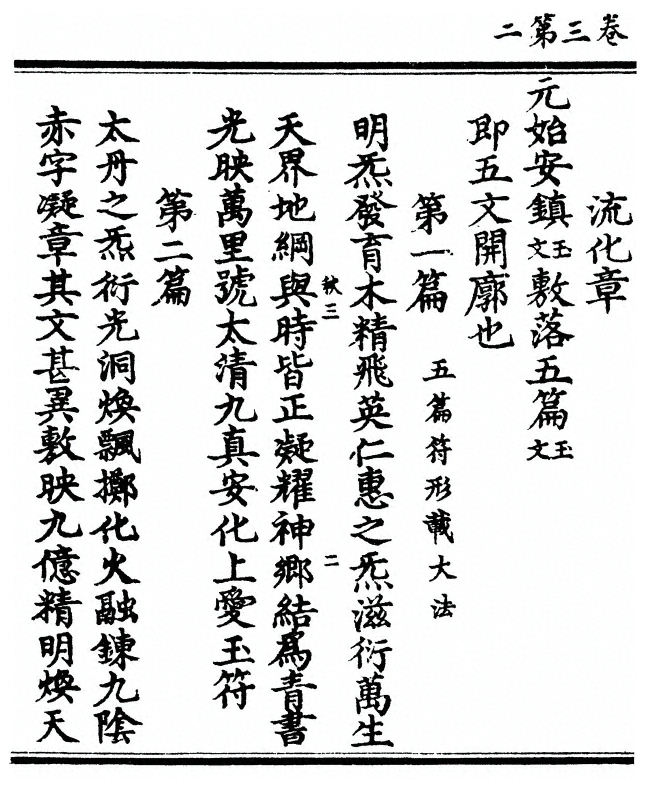 卷三第二
流化章
元始安鎮玉文敷落五篇玉文
即五文開廓也
第一篇 五篇符形載大法
明炁發育木精飛英仁惠之炁滋衍萬生
天界地綱與時皆正凝耀神鄉結為青書
光映萬里號太清九真安化上愛玉符
第二篇
太丹之炁衍光洞煥飄擲化火融鍊九陰
赤字凝章其文甚異敷映九億精明煥天
三
二